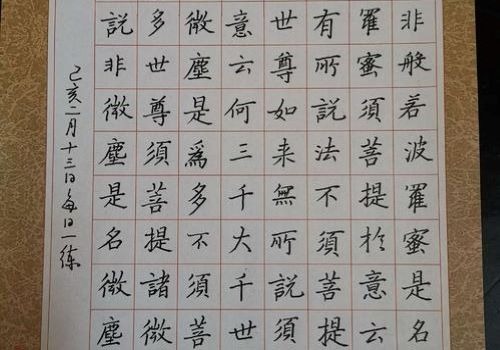 非般若波羅蜜是名
羅蜜須菩提於意云
有所說法不須菩提
世尊如来無所說須
意云何三千大千世
微塵是爲多不須菩
多世尊須菩提諸微
說非微塵是名微塵
己亥二月十三日每日一练